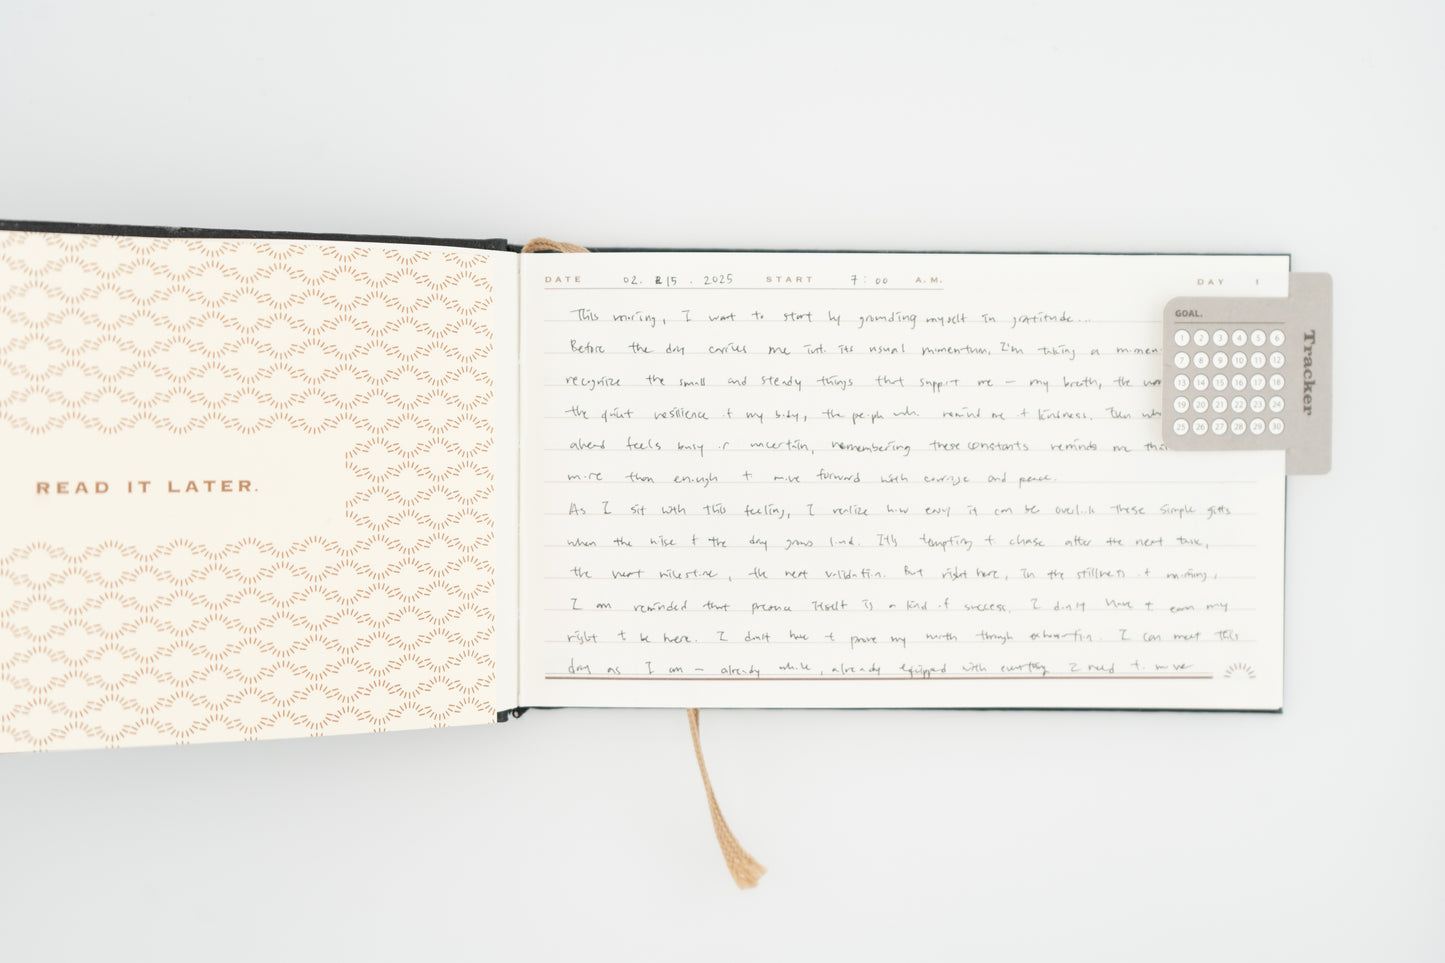 READ IT LATER.
DATE 02. 15. 2025 START 7:00 A.M. DAY 1
This morning, I want to start by grounding myself in gratitude...
Before the day carries me into its usual momentum, I'm taking a momen
recognize the small and steady things that support me — my breath, the
the quiet resilience of my body, the people who remind me of kindness. Even wh
ahead feels busy or uncertain, remembering these constants reminds me tha
more than enough to move forward with courage and peace.
As I sit with this feeling, I realize how easy it can be overlook these simple gifts
when the noise of the day grows loud. It's tempting to chase after the next task,
the next milestone, the next validation. But right here, in the stillness of morning,
I am reminded that presence itself is a kind of success. I don't have to earn my
right to be here. I don't have to prove my worth through exhaustion. I can meet this
day as I am — already whole, already equipped with everything I need to move
GOAL.
1 2 3 4 5 6
7 8 9 10 11 12
13 14 15 16 17 18
19 20 21 22 23 24
25 26 27 28 29 30
Tracker